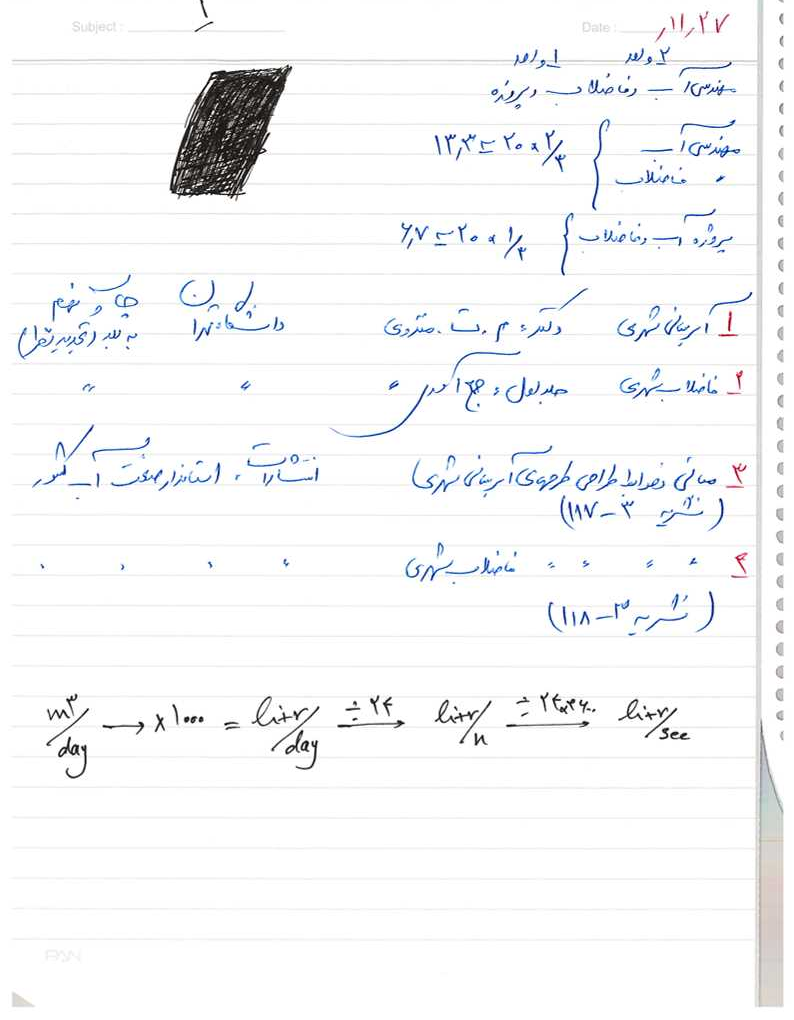 ۱
Subject : Date : ۲۷ر۱۱ر
۲ واحد ۱ واحد
مهندسی آب و فاضلاب و پروژه
مهندسی آب
" فاضلاب } ۲/۳ × ۲۰ = ۱۳٫۳
پروژه آب و فاضلاب } ۱/۳ × ۲۰ = ۶٫۷
۱ آبرسانی شهری دکتر م.ت. منزوی دانشگاه تهران چاپ نهم
به بعد (تجدید نظر)
۲ فاضلاب شهری جلد اول جمع آوری " " "
۳ مبانی و ضوابط طراحی طرحهای آبرسانی شهری انتشارات استاندارد صنعت آب کشور
(نشریه ۳–۱۱۷)
۴ " " " " فاضلاب شهری " " " "
(نشریه ۳–۱۱۸)
m۳/day → ×۱۰۰۰ = litr/day ÷۲۴ → litr/h ÷۲۴×۳۶۰۰ → litr/sec
PAN